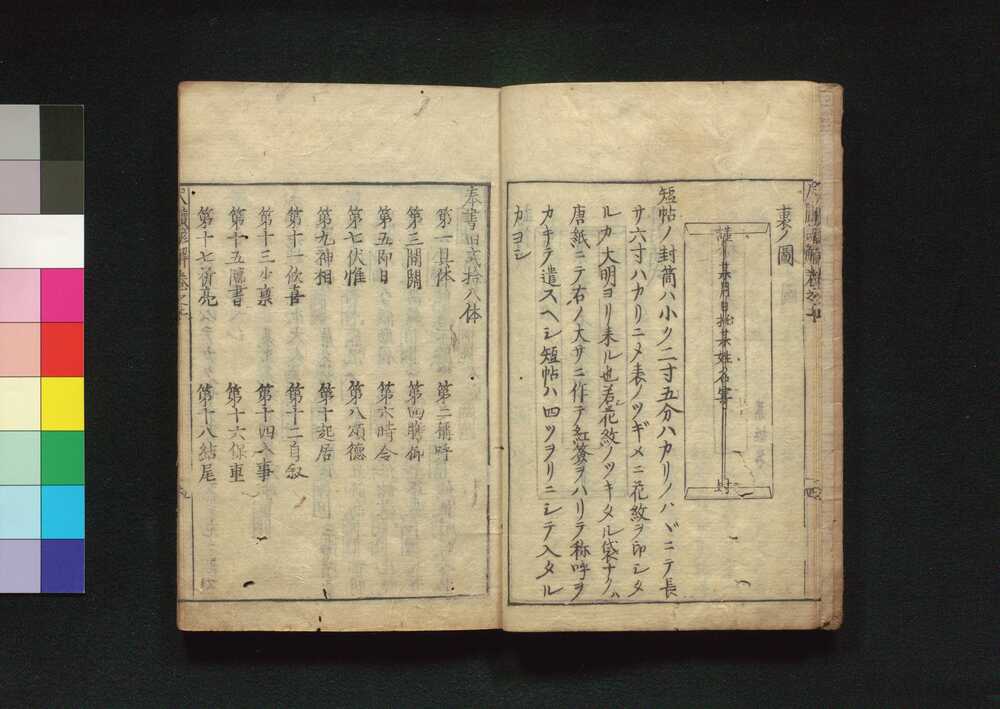 裏ノ圖
謹 某月日拾某姓名字 封
短帖ノ封筒ハ小ク二寸五分ハカリノハヾニテ長
サ六寸ハカリニメ表ノツギメニ花紋ヲ印シタ
ルカ大明ヨリ来ル也若花紋ノツキタル袋ナクハ
唐紙ニテ右ノ大サニ作テ紅簽ヲハリテ称呼ヲ
カキテ遣スヘシ短帖ハ四ツヲリニシテ入タル
カヨシ
四
奉書旧式拾八体
第一具体 第二稱呼
第三闊別 第四聘仰
第五即日 第六時令
第七伏惟 第八頌德
第九神相 第十起居
第十一欣喜 第十二自叙
第十三小稟 第十四入事
第十五 書 第十六保重
第十七 亮 第十八結尾